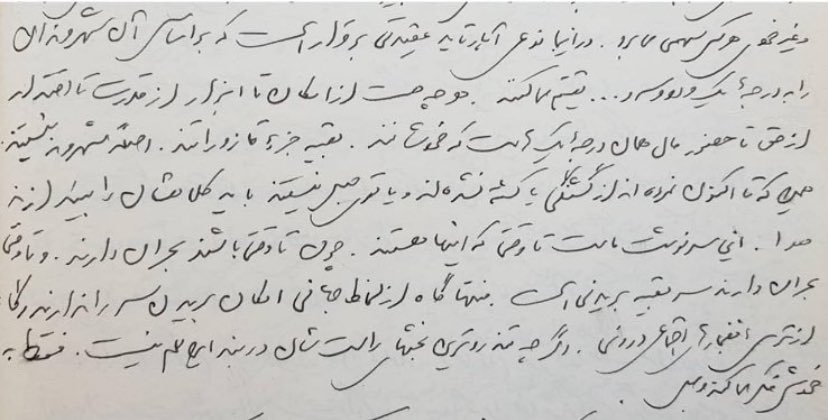 وغیر خودی هرکس سهمی می‌برد. در اینجا نوعی آپارتاید عقیدتی برقرار است که براساس آن شهروندان
را به درجهٔ یک و دو و سه و... تقسیم میکنند. هر چه هست از امکان تا ابزار از قدرت تا اقتدار
از حق تا حضور مال همان درجه یک هاست که خودشانند. بقیه جزء مازوراتند. اصلا شهروند نیستند.
همین که تا اکنون نمرده اند از گشنگی یا کشته نشده اند و یا توی حبس نیستند باید کلاهشان را بیندازند
هوا. این سرنوشت ماست تا وقتی که اینها هستند. چون تا وقتی باشند بحران دارند. و تا وقتی
بحران دارند سر بقیه بریدنی است. منتها گاه از لحاظ جهانی امکان بریدن سر را ندارند و گاه
از ترس انفجار اجتماعی درونی. وگرچه تندروترین بخشهای راست شان در بند این هم نیست. فقط به
خودش فکر میکند و بس.